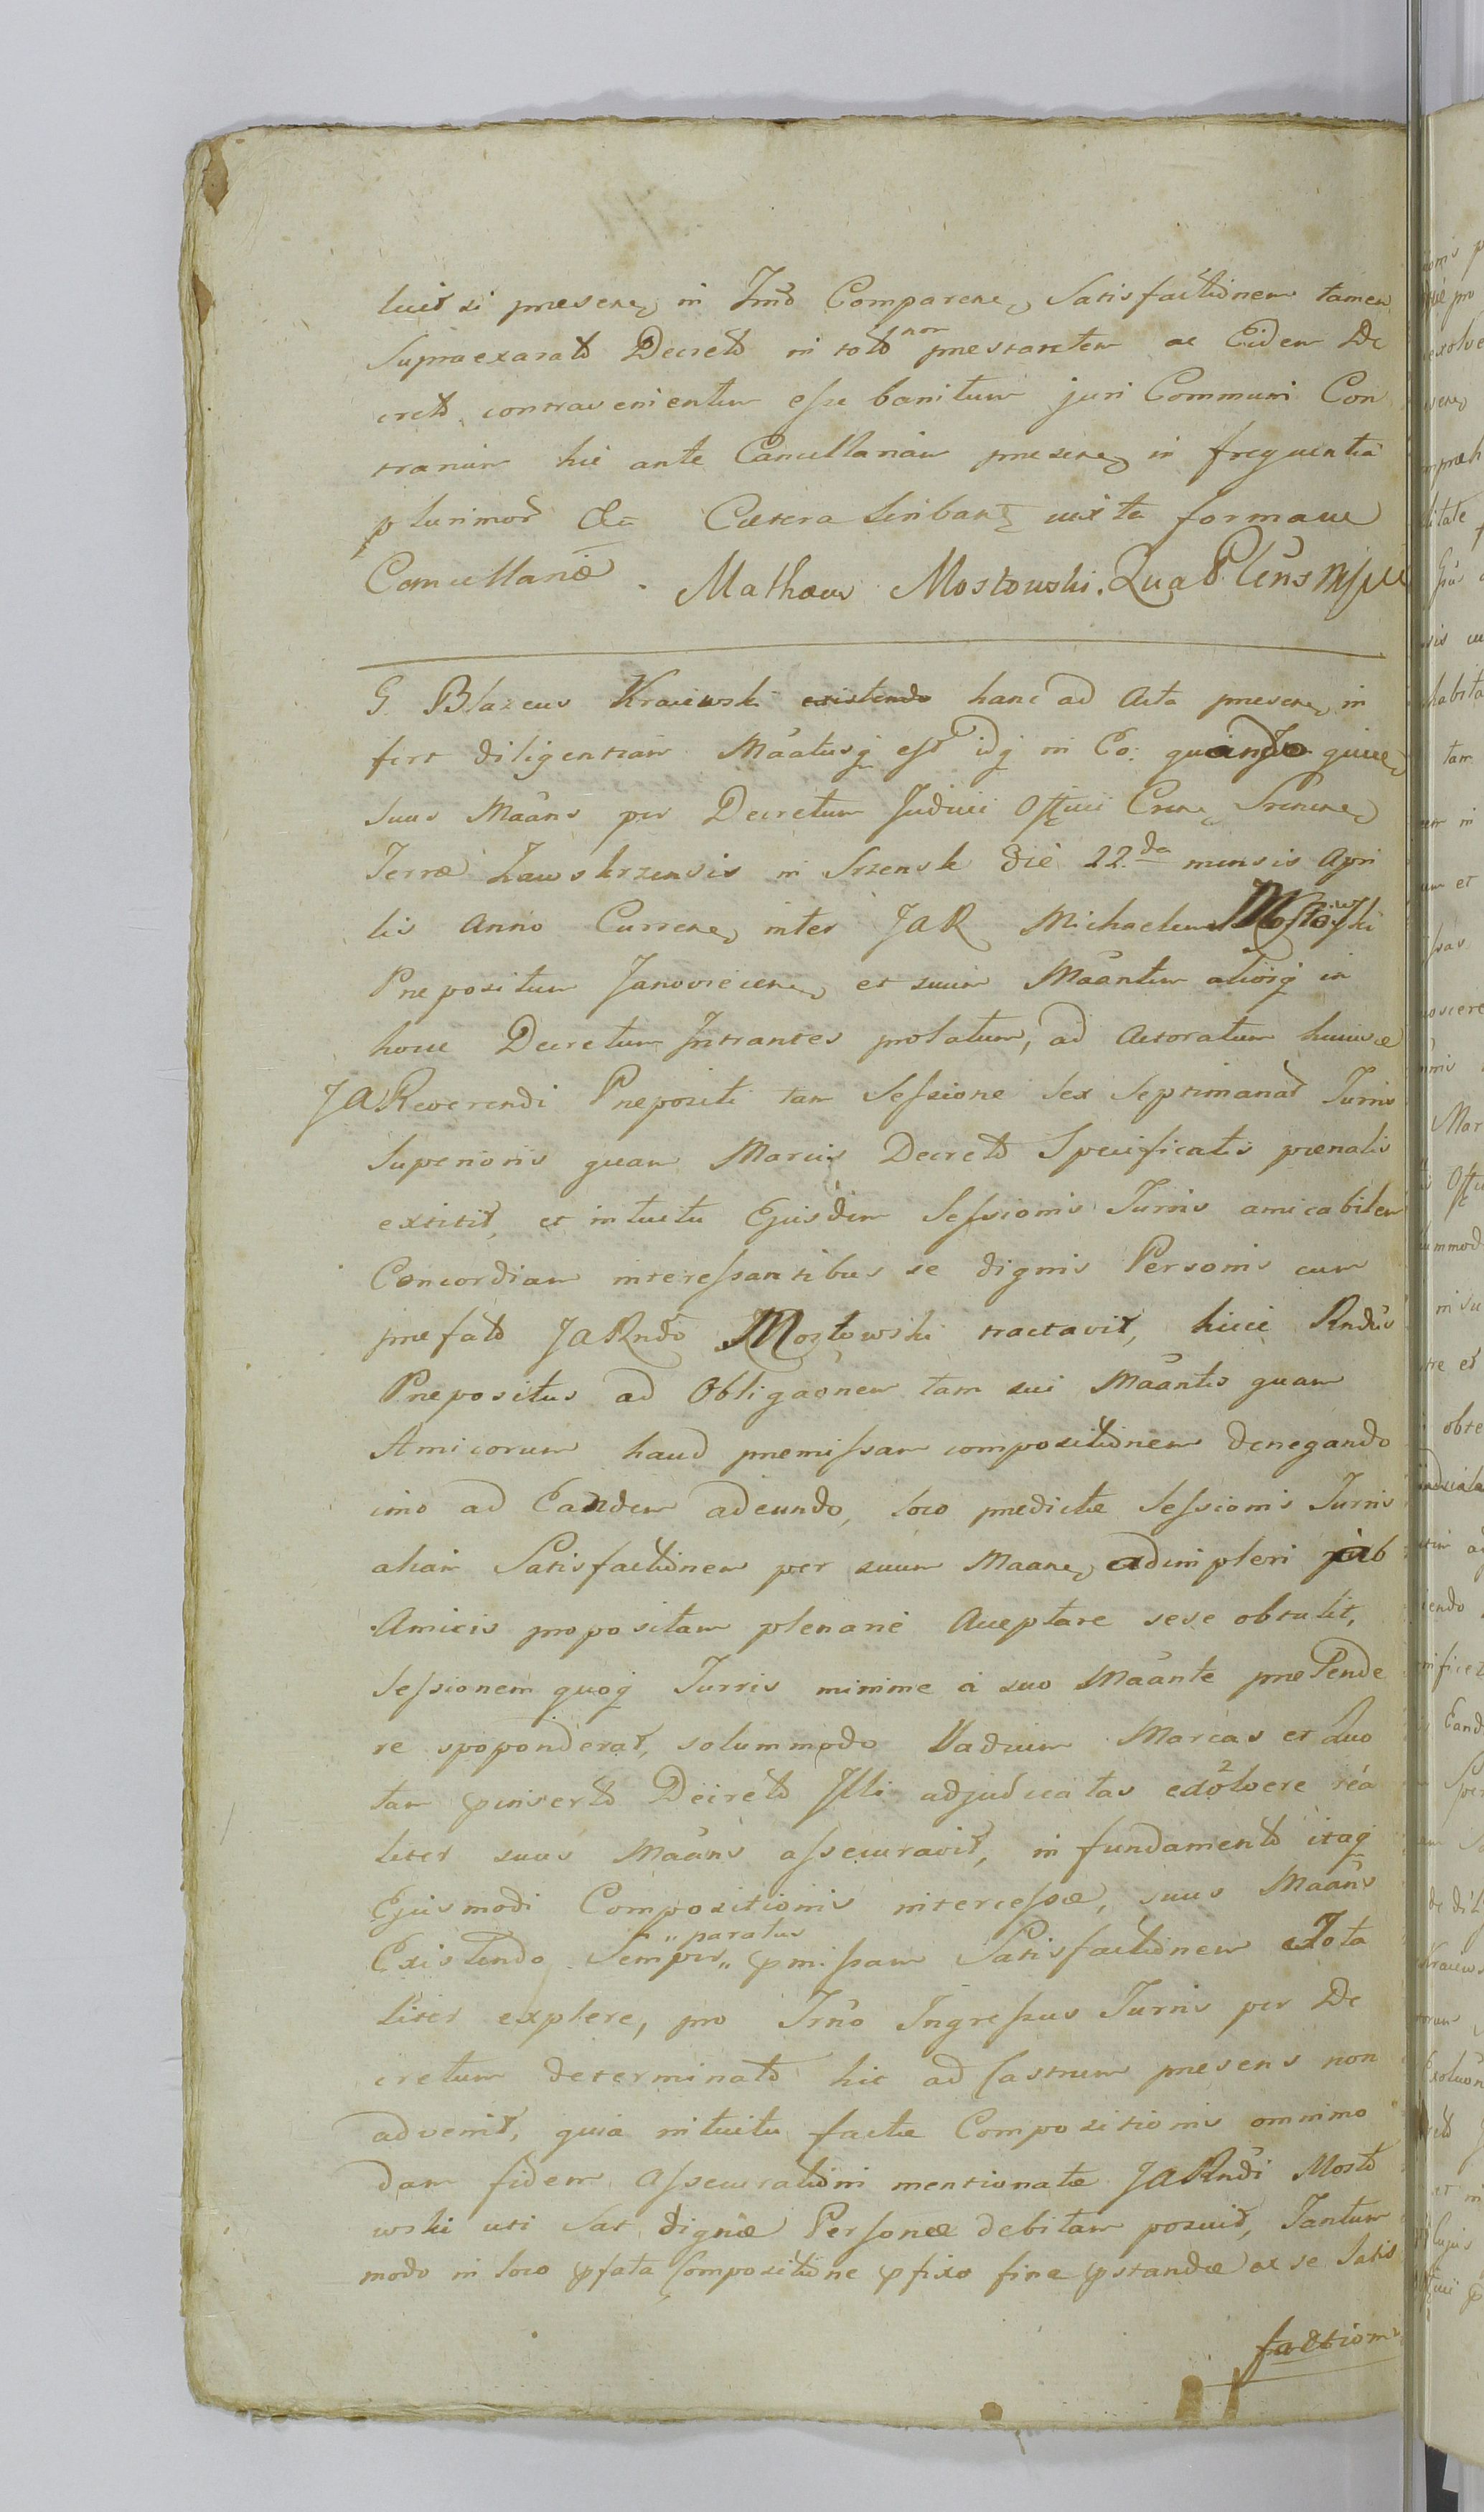 luit si presene in Tmo Comparene Satisfactionem tamen
Supraexarato Decreto in toto non prestantem ac Eidem De
creto contravenientem esse banitum juri Communi Con
trarium hic ante Cancellariam presene in frequentia
plurimor &a Cætera scribant juxta formam
Cancellariæ. Mathæus Mostowski. Qua Plens mpu
G. Blazeus Kraiewski existendo hanc ad Acta presene in
fert diligentiam Maatusq est idq in Eo: quando quiue
suus Maans per Decretum Judicii Officii Crene Srenene
Terræ Zawskrzensis in Srzensk die 22.da mensis Apri
lis Anno Currene inter JAR Michaelem Mostowski
Prepositum Janoviecene et suum Maantem aliosq in
hocce Decretum Intrantes prolatum, ad Actoratum huiusce
JAReverendi Prepositi tam Sessione sex Septimanar Turris
Superioris quam Marcis Decreto Specificatis pœnalis
extitit, et intuitu Ejusdem Sessionis Turris amicabilem
Concordiam interessantibus se dignis Personis cum
prefato JARndo Mostowski tractavit, hicce Rndus
Prepositus ad Obligaonem tam sui Maantis quam
Amicorum haud premissam compositionem denegando
imo ad Eandem adeundo, loco predictæ Sessionis Turris
aliam Satisfactionem per suum Maane adimpleri ab
Amicis propositam plenarie Acceptare sese obtulit,
Sessionem quoq Turris minime a suo Maante prætende
re spoponderat, solummodo Vadium Marcas et duo
tam pinserto Decreto Illi adjudicatas exolvere rea
liter suus Maans assecuravit, in fundamento itaq
Ejusmodi Compositionis intercessæ, suus Maans
Existendo Semper „paratus„ pmissam Satisfactionem Tota
liter explere, pro Trno Ingressus Turris per De
cretum determinato hic ad Castrum presens non
advenit, quia intuitu factæ Compositionis omnimo
dam fidem Assecurationi mentionatæ JARndi Mosto
wski uti Sat dignæ Personæ debitam posuit, Tantum
modo in loco pfata Compositione pfixo fine pstandæ ex se Satis
factionis